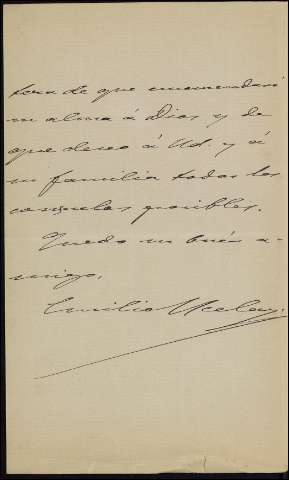 tera de que encomendaré
su alma á Dios y de
que deseo á Ud. y á
su familia todos los
consuelos posibles.
Quedo su buen a-
migo,
Emilio